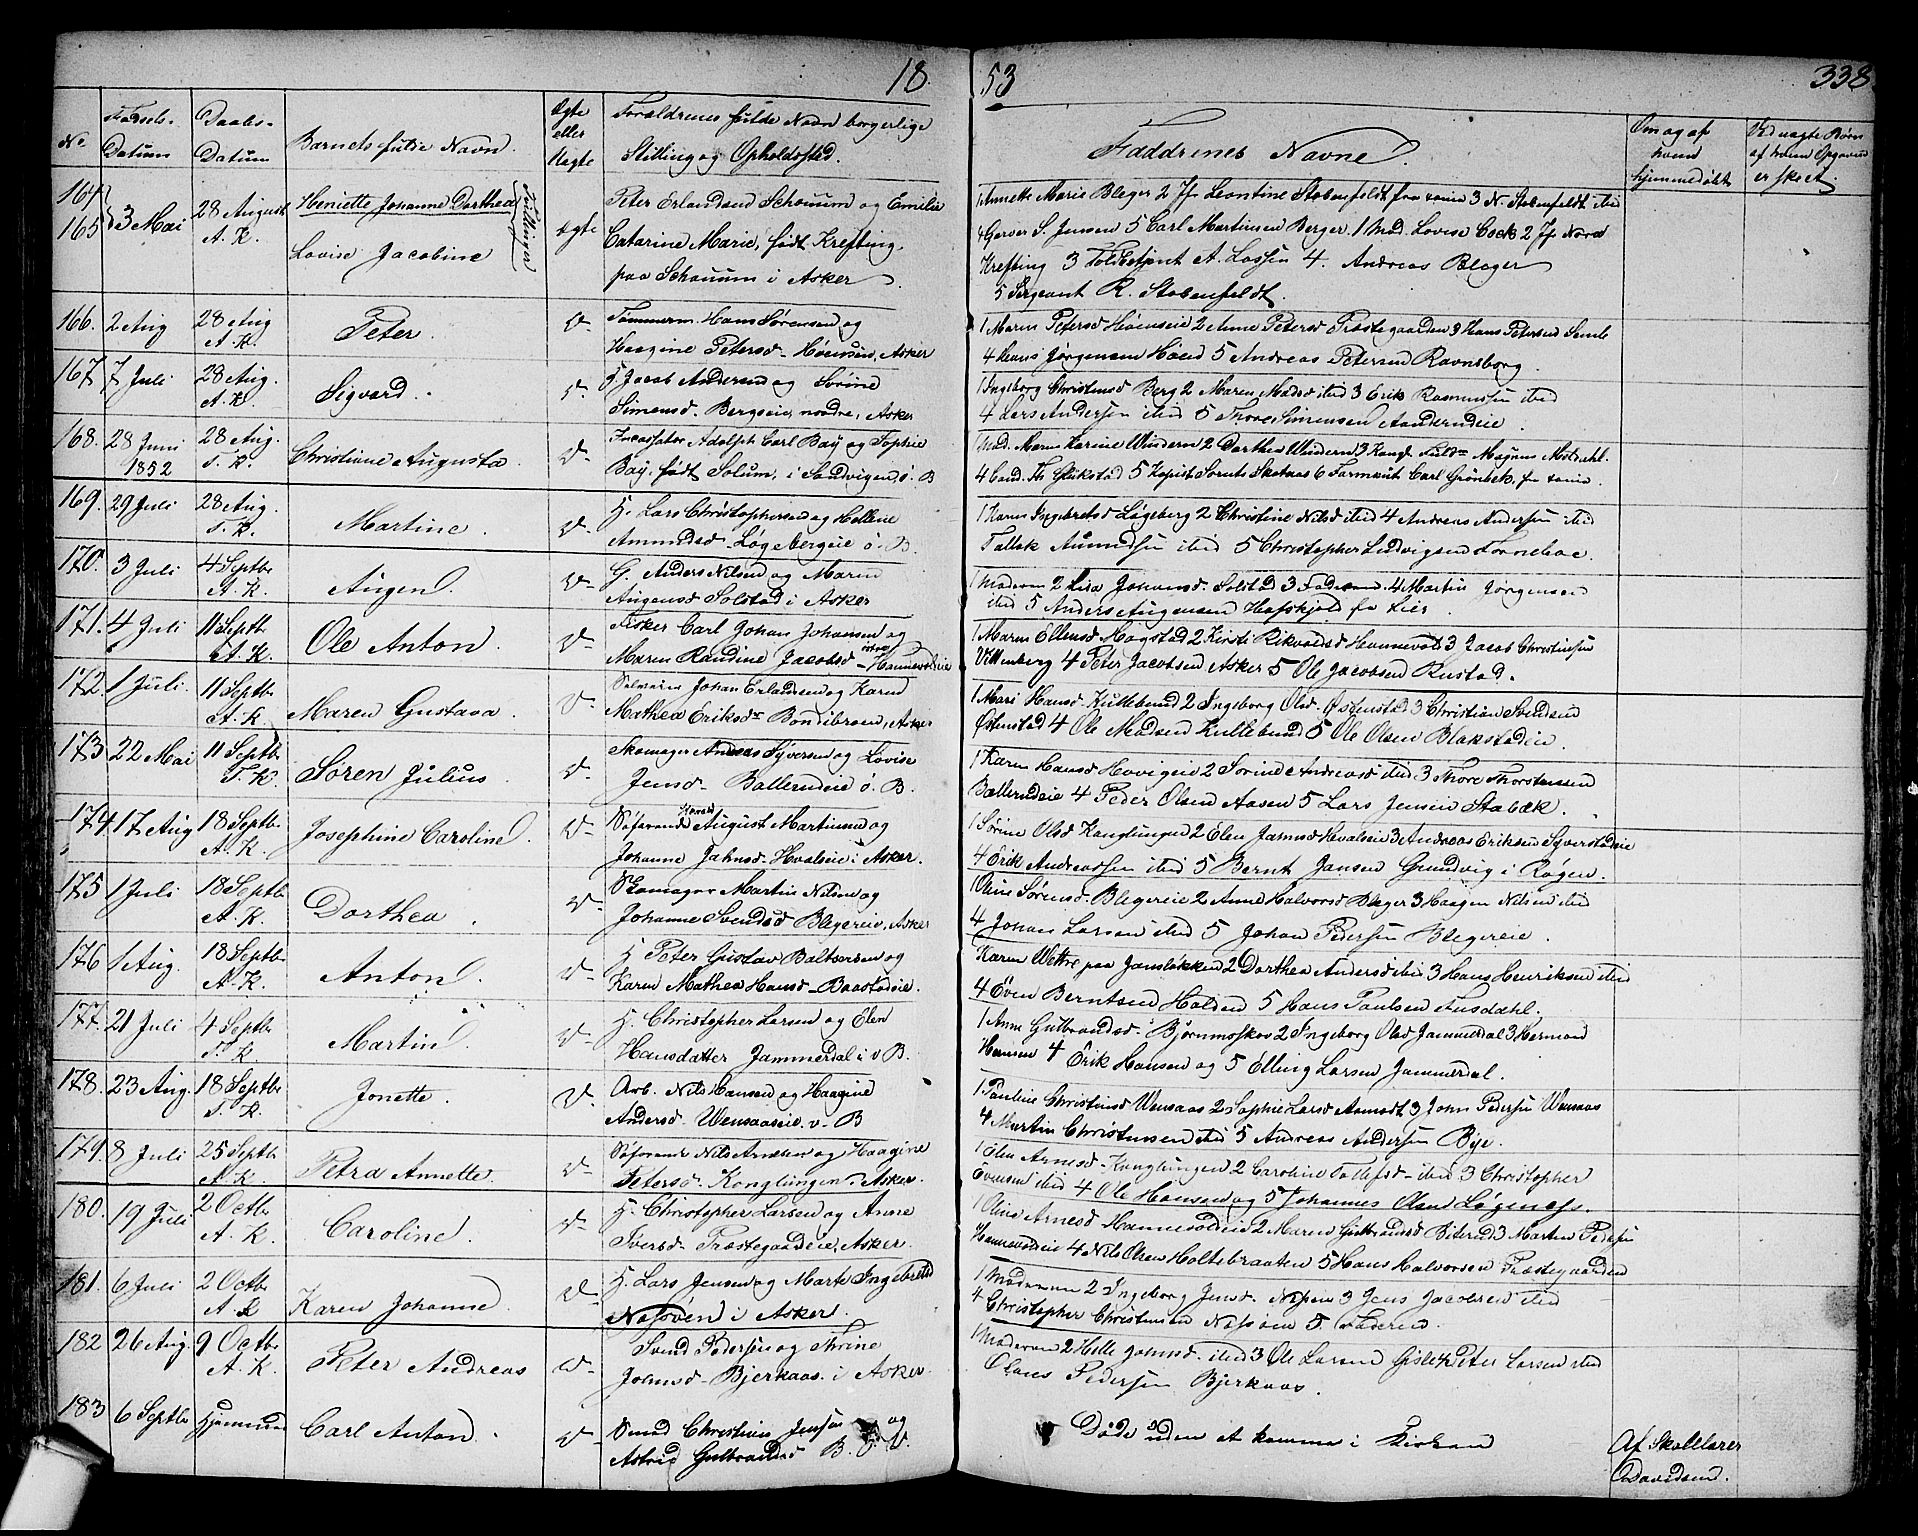 18 53 338
No. Fødsels- Datum Daabs- Datum Barnets fulde Navn. Ægte eller Uægte Forældrenes fulde Navn borgerlige Stilling og Opholdssted. Faddrenes Navne. Om og af hvem hjemmedøbt Ved uægte Børn af hvem Opgaven er skeet.
164 165 3 Mai 28 August A. K. Henriette Johanne Dorthea Lovise Jacobine Tvillinger ægte
Peter Erlandsen Schouum og Emilie
Catarine Marie, født Krefting,
paa Schouum i Asker
1 Annette Marie Bleger 2 Jf. Leontine Stabenfeldt fra 3 N. Stabenfeldt ibid
4 Garver S. Jensen 5 Carl Martinsen Berger. 1 Mad. Lovise Cock 2 Jf. Nora
Krefting 3 A. Lassen 4 Andreas Bleger
5 Sergeant R. Stabenfeldt.
166. 2 Aug 28 Aug A. K. Peter. V-
Tømmerm. Hans Sørensen og
Haagine Petersd- Høenseie, Asker
1 Maren Petersd Høenseie 2 Anne Petersd Præstegaarden 3 Hans Petersen Semb
4 Hans Jørgensen Høen 5 Andreas Petersen Ravnsborg.
167 7 Juli 28 Aug. A. K. Sigvard. V-
H. Jacob Andersen og Sørine
Simensd- Bergseie, nordre, Asker
1 Ingeborg Christensd Berg 2 Maren Madsd ibid 3 Erik Rasmussen ibid
4 Lars Andersen ibid 5 Thore Simensen
168. 28 Juni 1852 28 Aug. T. K. Christiane Augusta. V-
Adolph Carl Bay og Sophie
Bay, født Solum, i Sandvigen, ø. B
1 Mad. Maren Karine Windern 2 Dorthea Windern 3 Magnus
4 Cand. Th. Glükstad 5 6 Farmaut Carl Grønbek, fra
169. 29 Juli 28 Aug. T. K. Martine. V-
H. Lars Christophersen og Hellene
Amundsd- Løgebergeie ø. B.
1 Karen Ingebretsd Løgeberg 2 Christine Nilsd ibid 4 Andreas Andersen ibid
Tallak Amundsen ibid 5 Christopher Ludvigsen Forneboe.
170. 3 Juli 4 Septbr A. K. Augen. V-
G. Anders Nilsen og Maren
Augensd Solstad i Asker
1 Moderen 2 Lisa Johansd- Solstad 3 Faderen 4 Martin Jørgensen
ibid 5 Anders Augensen Hafskjold fra Lier.
171. 4 Juli 11 Septbr A. K. Ole Anton. V-
Fisker Carl Johan Johansen og
Maren Randine Jacobsd- østre Hannevoldeie
1 Maren Ellensd Mogstad 2 Kirsti Rikvoldsd Hannevold 3 Jacob Christensen
Vittenberg 4 Peter Jacobsen Asker 5 Ole Jacobsen Rustad.
172. 1 Juli. 11 Septbr A. K. Maren Gustava. V-
Johan Erlandsen og Karen
Mathea Eriksdr Bondibroen, Asker
1 Mari Hansd Kullebund 2 Ingeborg Olsd. Østenstad 3 Christian Svendsen
Østenstad 4 Ole Madsen Kullebund 5 Ole Olsen Blakstadeie.
173. 22 Mai 11 Septbr T. K. Søren Julius. V-
Skomager Andreas Syversen og Lovise
Jensd- Ballerudeie ø. B.
1 Karen Hansd Hovigeie 2 Sorine Andreasd ibid 3 Thore Thorstensen
Ballerudeie 4 Peder Olsen Aasen 5 Lars Jensen Stabæk.
174 17 Aug 18 Septbr A. K. Josephine Caroline. V-
Søfarende August Martinsen og
Johanne Jahnsd- Hvalseie i Asker.
1 Sørine Olsd Konglungen 2 Elen Jahnsd Hvalseie 3 Andreas Eriksen Syverstadeie
4 Erik Andreassen ibid 5 Bernt Jansen Grundvig i Røgen.
175 1 Juli 18 Septbr A. K. Dorthea. V-
Skomager Martin Nilsen og
Johanne Svendsd Blegereie, Asker
1 Oline Sørensd- Blegereie 2 Anne Halvorsd Bleger 3 Haagen Nilsen ibid
4 Johan Larsen ibid 5 Johan Pedersen Blegereie.
176 1 Aug. 18 Septbr A. K. Anton. V-
H Peter Gustav Baltsersen og
Karen Mathea Hansd- Baastadeie.
Karen Wettre paa Jansløkken 2 Dorthea Andersd ibid 3 Hans Henriksen ibid
4 Even Berntsen Halden 5 Hans Paulsen Fusdahl.
177. 21 Juli 4 Septbr T. K. Martin. V-
H. Christopher Larsen og Elen
Hansdatter Jammerdal i v B.
1 Anne Gulbrandsd. Bjørnmoskov 2 Ingeborg Olsd Jammerdal 3 Herman
Hansen 4 Erik Hansen og 5 Elling Larsen Jammerdal.
178. 23 Aug. 18 Septbr T. K. Jonette. V-
Arb. Nils Hansen og Haagine
Andersd- Wensaaseie. v. B
1 Pauline Christensd Wensaas 2 Sophie Larsd Aamodt 3 John Pedersen Wensaas
4 Martin Christensen ibid 5 Andreas Andersen Bye.
179. 8 Juli 25 Septbr A. K. Petra Annette. V-
Søfarende Nils og Haagine
Petersd- Konglungen i Asker.
1 Elen Arnesd- Konglungen 2 Caroline Tollefsd- ibid 3 Christopher
Evensen ibid 4 Ole Hansen og 5 Johannes Olsen Løgenes.
180. 19 Juli 2 Octbr A. K. Caroline. V-
H. Christopher Larsen og Anne
Iversd- Præstegaardeie, Asker.
1 Oline Arnesd Hannevoldeie 2 Maren Gulbrandsd Biterud 3 Morten Pedersen
Hannevoldeie 4 Nils Olsen Holtebraaten 5 Hans Halvorsen Præstegaarden
181. 6 Juli 2 Octbr A. K Karen Johanne. V-
H. Lars Jensen og Marte Ingebretsd
Næsøen i Asker.
1 Moderen 2 Ingeborg Jensd- Næsøen 3 Jens Jacobsen ibid
4 Christopher Christensen Næsøen 5 Faderen.
182 26 Aug. 9 Octbr A. K. Peter Andreas V-
Svend Pedersen og Thrine
Johnsd- Bjerkaas. i Asker.
1 Moderen 2 Helle Johnsd- ibid 3 Ole Larsen Gisle 4 Peter Larsen ibid
Claus Pedersen Bjerkaas.
183 6 Septbr Hjemmed Carl Anton. V-
Smed Christen Jensen og
Astrid Gulbrandsd B.
Døde uden at komme i Kirken
Af Skolelærer
Davidsen.